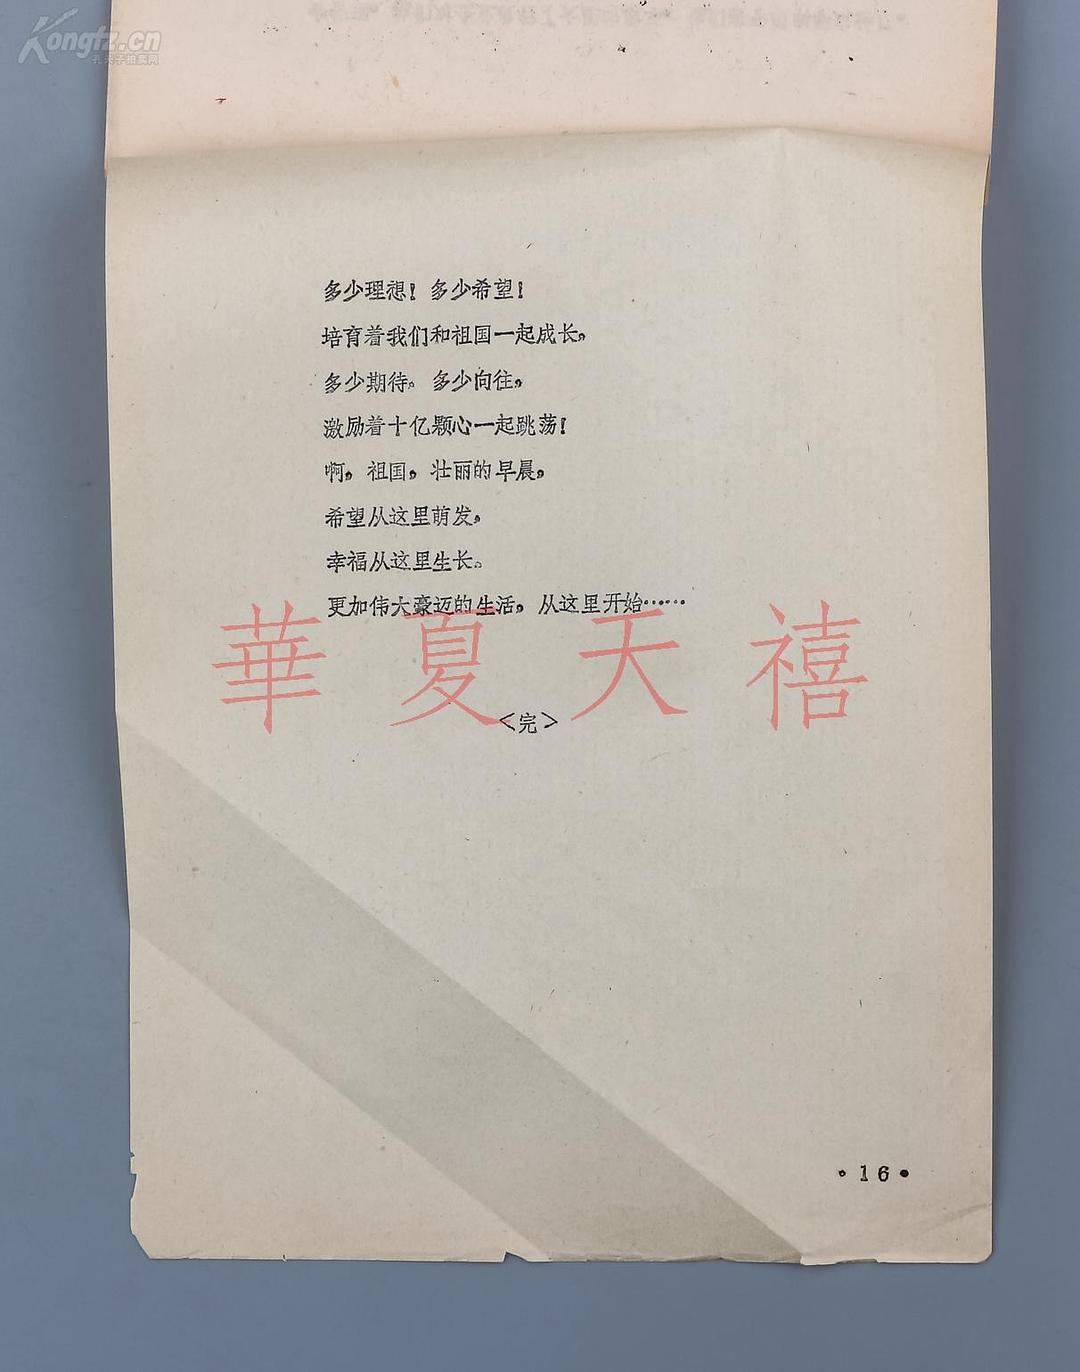 Kongfz.cn
孔夫子拍卖网
多少理想！多少希望！
培育着我们和祖国一起成长，
多少期待。多少向往，
激励着十亿颗心一起跳荡！
啊，祖国，壮丽的早晨，
希望从这里萌发，
幸福从这里生长。
更加伟大豪迈的生活，从这里开始……
華夏天禧
<完>
•16•